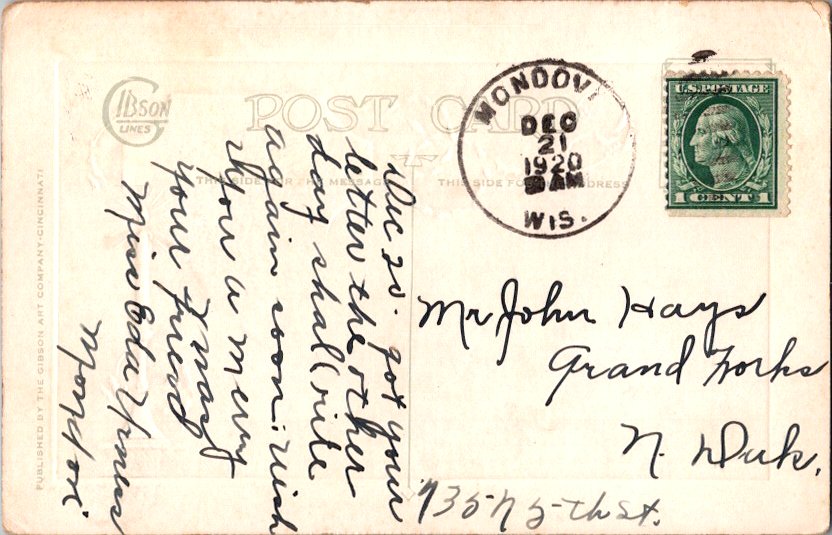 GIBSON
LINES
POST CARD
THIS SIDE FOR THE MESSAGE
THIS SIDE FOR ADDRESS
PUBLISHED BY THE GIBSON ART COMPANY-CINCINNATI
MONDOVI
DEC
21
1920
AM
WIS.
U.S. POSTAGE
1 CENT 1
Dec 20. got your
letter the other
day shall rite
again soon. wish
you a merry
Xmas
your friend
Miss Eda
Mondovi
Mr John Hays
Grand Forks
N. Dak.
735 N 5-th St.